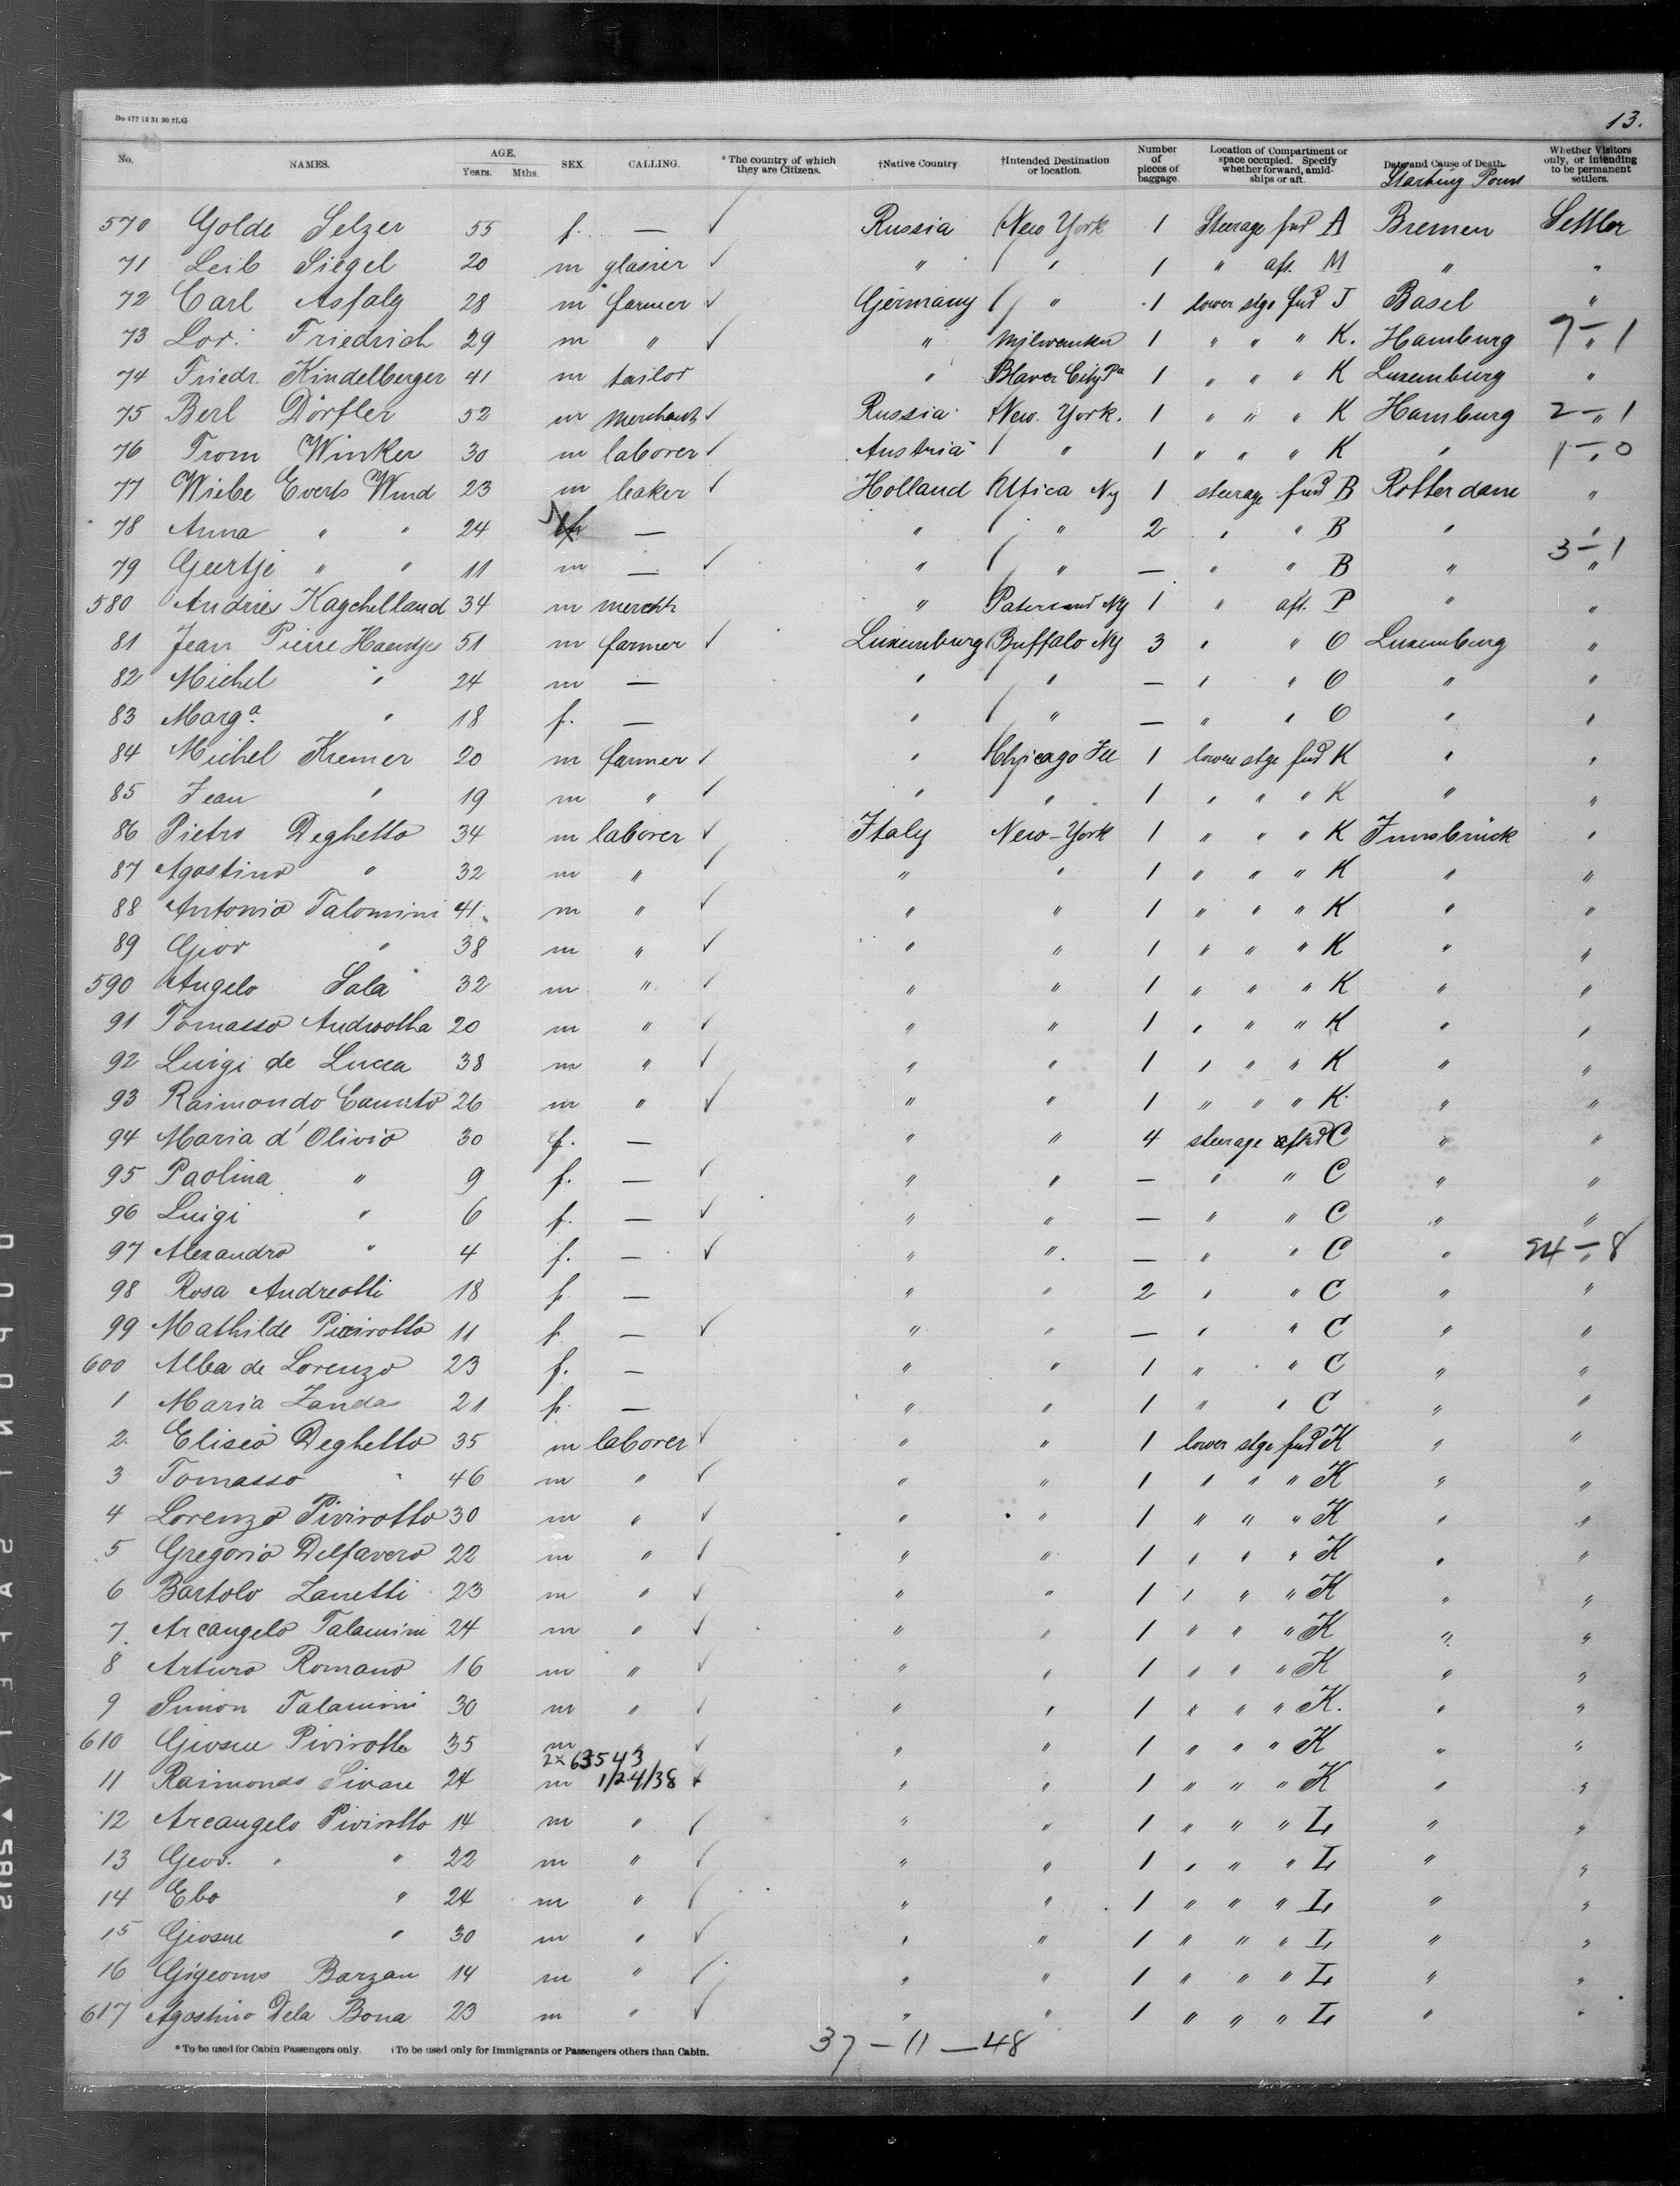 Do 477 12 31 90 2LG
13.
No. NAMES. AGE. Years. Mths. SEX. CALLING. * The country of which they are Citizens. †Native Country †Intended Destination or location. Number of pieces of baggage. Location of Compartment or space occupied. Specify whether forward, amidships or aft. Date and Cause of Death. Starting Point Whether Visitors only, or intending to be permanent settlers.
570 Golde Selzer 55 f. — ✓ Russia New York 1 Steerage fwd A Bremen Settler
71 Leib Siegel 20 m glasier ✓ " " 1 " aft. M " "
72 Carl Asfalg 28 m farmer ✓ Germany " 1 lower stge fwd J Basel "
73 Lor. Friedrich 29 m " ✓ " Milwaukee 1 " " " K. Hamburg " 7 — 1
74 Friedr. Kindelberger 41 m tailor " Blaver City Pa 1 " " " K Luxemburg "
75 Berl Dörfler 52 m merchant ✓ Russia New York. 1 " " " K Hamburg " 2 — 1
76 From Winker 30 m laborer ✓ Austria " 1 " " " K " " 1 — 0
77 Wiebe Everts Wind 23 m baker ✓ Holland Utica Ny 1 steerage fwd B Rotterdam "
78 Anna " " 24 f. — " " 2 " " B " "
79 Geertje " " 11 m — ✓ " " — " " B " " 3 — 1
580 Andries Kagchelland 34 m mercht " Ny 1 " aft. P " "
81 Jean Pierre Haentges 51 m farmer ✓ Luxemburg Buffalo Ny 3 " " O Luxemburg "
82 Michel " 24 m — " " — " " O " "
83 Marga. " 18 f. — " " — " " O " "
84 Michel Kremer 20 m farmer ✓ " Chicago Ill 1 lower stge fwd K " "
85 Jean " 19 m " ✓ " " 1 " " " K " "
86 Pietro Deghetto 34 m laborer ✓ Italy New-York 1 " " " K Innsbrück "
87 Agostino " 32 m " ✓ " " 1 " " " K " "
88 Antonio Talomini 41 m " ✓ " " 1 " " " K " "
89 Giov " 38 m " ✓ " " 1 " " " K " "
590 Angelo Sala 32 m " ✓ " " 1 " " " K " "
91 Tomasso Andwotha 20 m " ✓ " " 1 " " " K " "
92 Luigi de Lucca 38 m " ✓ " " 1 " " " K " "
93 Raimondo 26 m " ✓ " " 1 " " " K " "
94 Maria d'Olivio 30 f. — " " 4 steerage C " "
95 Paolina " 9 f. — ✓ " " — " " C " "
96 Luigi " 6 f. — ✓ " " — " " C " "
97 Alexandro " 4 f. — ✓ " " — " " C " " 24 — 8
98 Rosa Andreotti 18 f — " " 2 " " C " "
99 Mathilde Pivirotto 11 f — ✓ " " — " " C " "
600 Alba de Lorenzo 23 f. — " " 1 " " C " "
1 Maria Zanda 21 f. — " " 1 " " C " "
2 Eliseo Deghetto 35 m laborer ✓ " " 1 lower stge fwd K " "
3 Tomasso " 46 m " ✓ " " 1 " " " K " "
4 Lorenzo Pivirotto 30 m " ✓ " " 1 " " " K " "
5 Gregorio Delfavero 22 m " ✓ " " 1 " " " K " "
6 Bartolo Zanetti 23 m " ✓ " " 1 " " " K " "
7 Arcangelo Talamini 24 m " ✓ " " 1 " " " K " "
8 Arturo Romano 16 m " ✓ " " 1 " " " K " "
9 Simon Talamini 30 m " ✓ " " 1 " " " K. " "
610 Giosue Pivirotto 35 m " ✓ " " 1 " " " K " "
2x 63543
11 Raimondo Sivan 24 m 1/24/38 ✓ " " 1 " " " K " "
12 Arcangelo Pivirotto 14 m " ✓ " " 1 " " " L " "
13 Geov. " " 22 m " ✓ " " 1 " " " L " "
14 Ebo " 24 m " ✓ " " 1 " " " L " "
15 Giosue " 30 m " ✓ " " 1 " " " L " "
16 Gigeoms Barzan 14 m " ✓ " " 1 " " " L " "
617 Agostino Dela Bona 23 m " ✓ " " 1 " " " L " "
* To be used for Cabin Passengers only. †To be used only for Immigrants or Passengers others than Cabin.
37 — 11 — 48